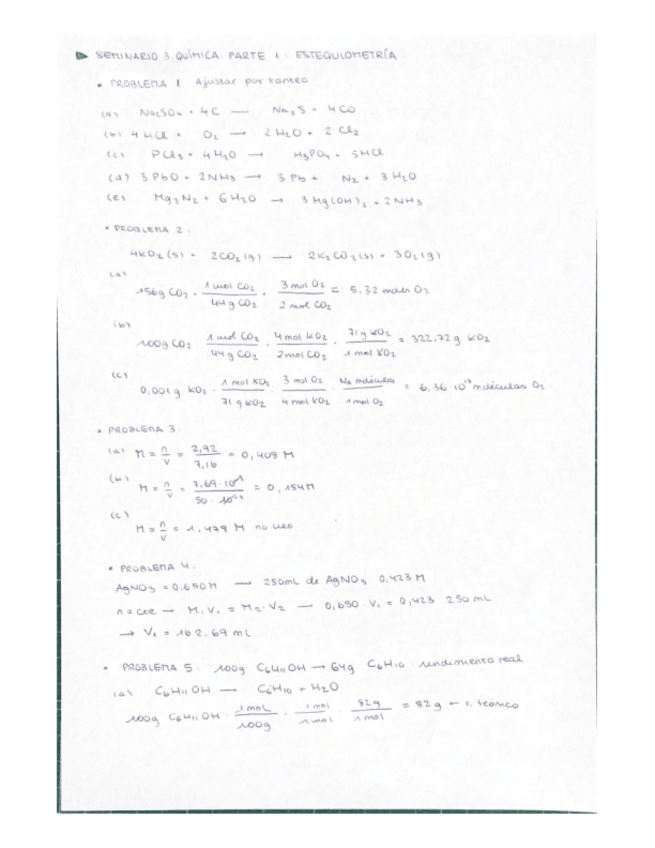 ▶ SEMINARIO 3 QUÍMICA PARTE 1: ESTEQUIOMETRÍA
• PROBLEMA 1 Ajustar por tanteo
(a) Na₂SO₄ + 4C — Na₂S + 4CO
(b) 4HCl + O₂ → 2H₂O + 2Cl₂
(c) PCl₅ + 4H₂O → H₃PO₄ + 5HCl
(d) 3PbO + 2NH₃ → 3Pb + N₂ + 3H₂O
(e) Mg₃N₂ + 6H₂O → 3Mg(OH)₂ + 2NH₃
• PROBLEMA 2:
4KO₂(s) + 2CO₂(g) → 2K₂CO₃(s) + 3O₂(g)
(a)
156g CO₂ · 1 mol CO₂/44g CO₂ · 3 mol O₂/2 mol CO₂ = 5,32 moles O₂
(b)
100g CO₂ 1 mol CO₂/44g CO₂ · 4 mol KO₂/2 mol CO₂ · 71g KO₂/1 mol KO₂ = 322,72g KO₂
(c)
0,001g KO₂ · 1 mol KO₂/71g KO₂ · 3 mol O₂/4 mol KO₂ · Na moléculas/1 mol O₂ = 6,36 10¹⁸ moléculas O₂
• PROBLEMA 3:
(a) M = n/V = 2,92/7,16 = 0,408 M
(b) M = n/V = 7,69·10⁻³/50·10⁻³ = 0,154M
(c)
M = n/V = 1,478 M no
• PROBLEMA 4:
AgNO₃ = 0,650M → 250mL de AgNO₃ 0,423M
n = cte → M₁V₁ = M₂·V₂ → 0,650·V₁ = 0,423 250mL
→ V₁ = 162,69 mL
• PROBLEMA 5: 100g C₆H₁₁OH → 64g C₆H₁₀ rendimiento real
(a) C₆H₁₁OH → C₆H₁₀ + H₂O
100g C₆H₁₁OH · 1 mol/100g · 1 mol/1 mol · 82g/1 mol = 82g ← r. teórico